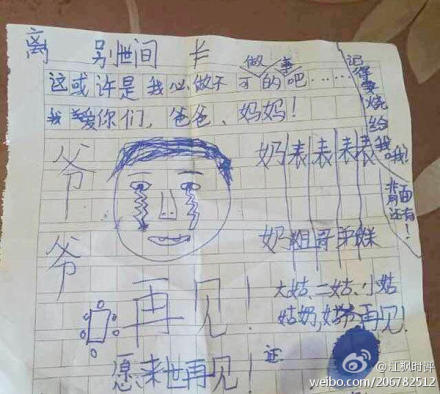 离别世间
这或许是我必做不可的吧……
做事
我爱你们，爸爸、妈妈！
记得要烧给我哦！
背面还有！
爷爷
奶奶
表姐
表哥
表弟
表妹
大姑、二姑、小姑
姑奶，再见！
再见！
愿来世再见！
证
@江枫时评
weibo.com/206782512